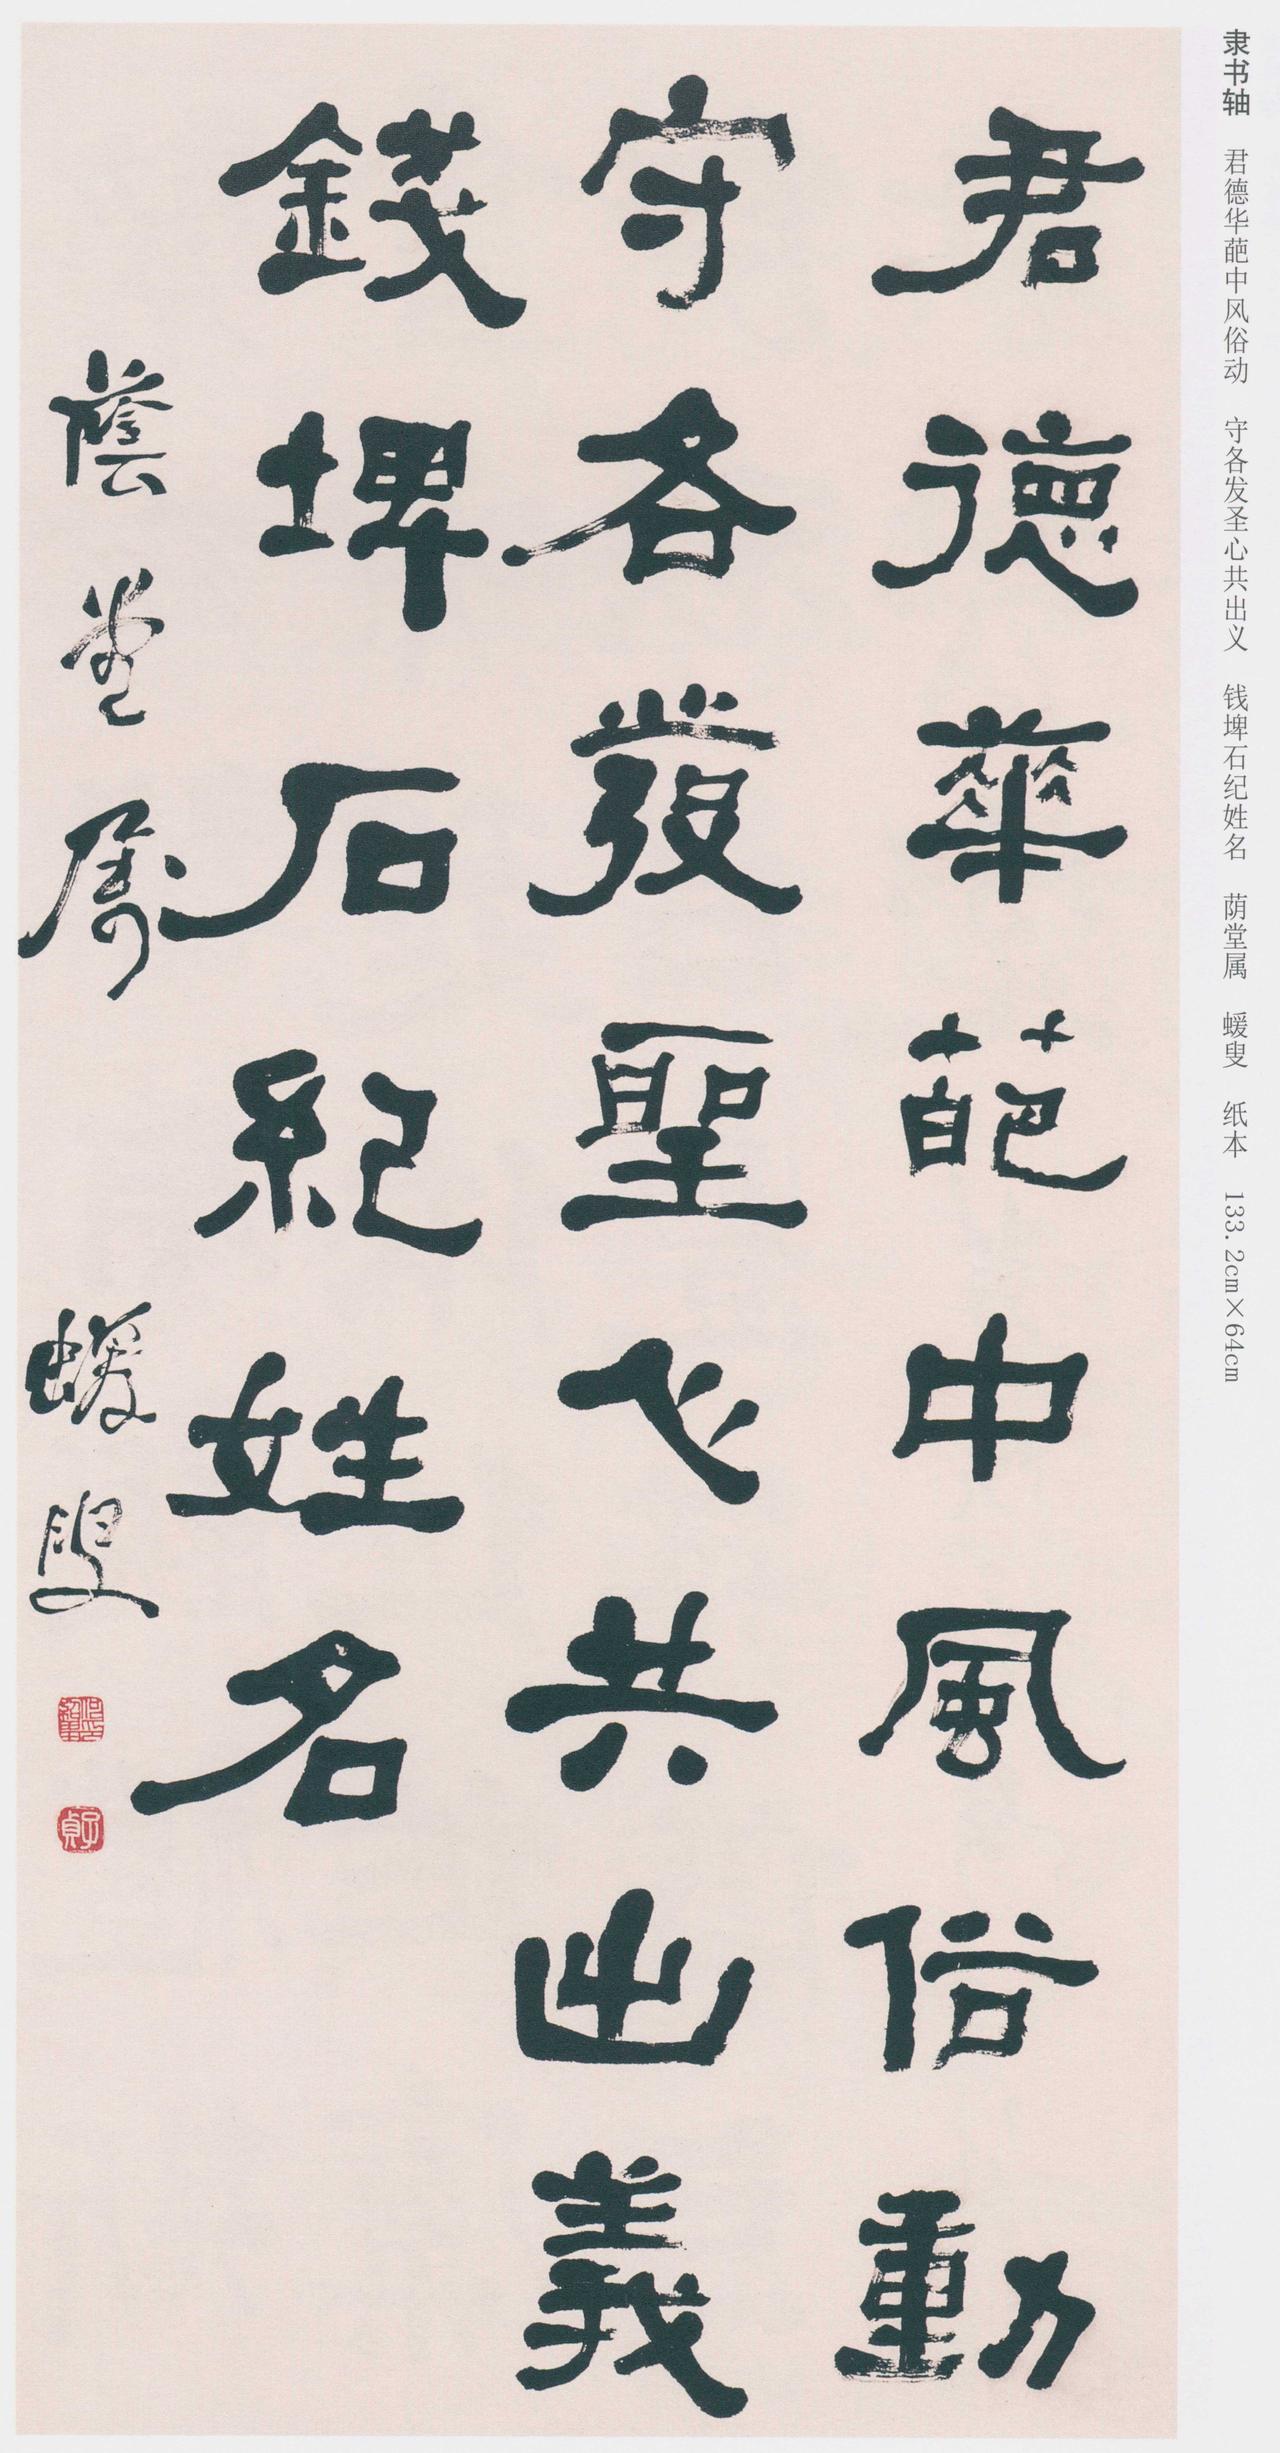 隶书轴 君德华葩中风俗动 守各发圣心共出义 钱埤石纪姓名 荫堂属 蝯叟 纸本 133.2cm×64cm
君德華葩中風俗動
守各發聖心共出義
錢埤石紀姓名
蔭堂屬 蝯叟
子貞